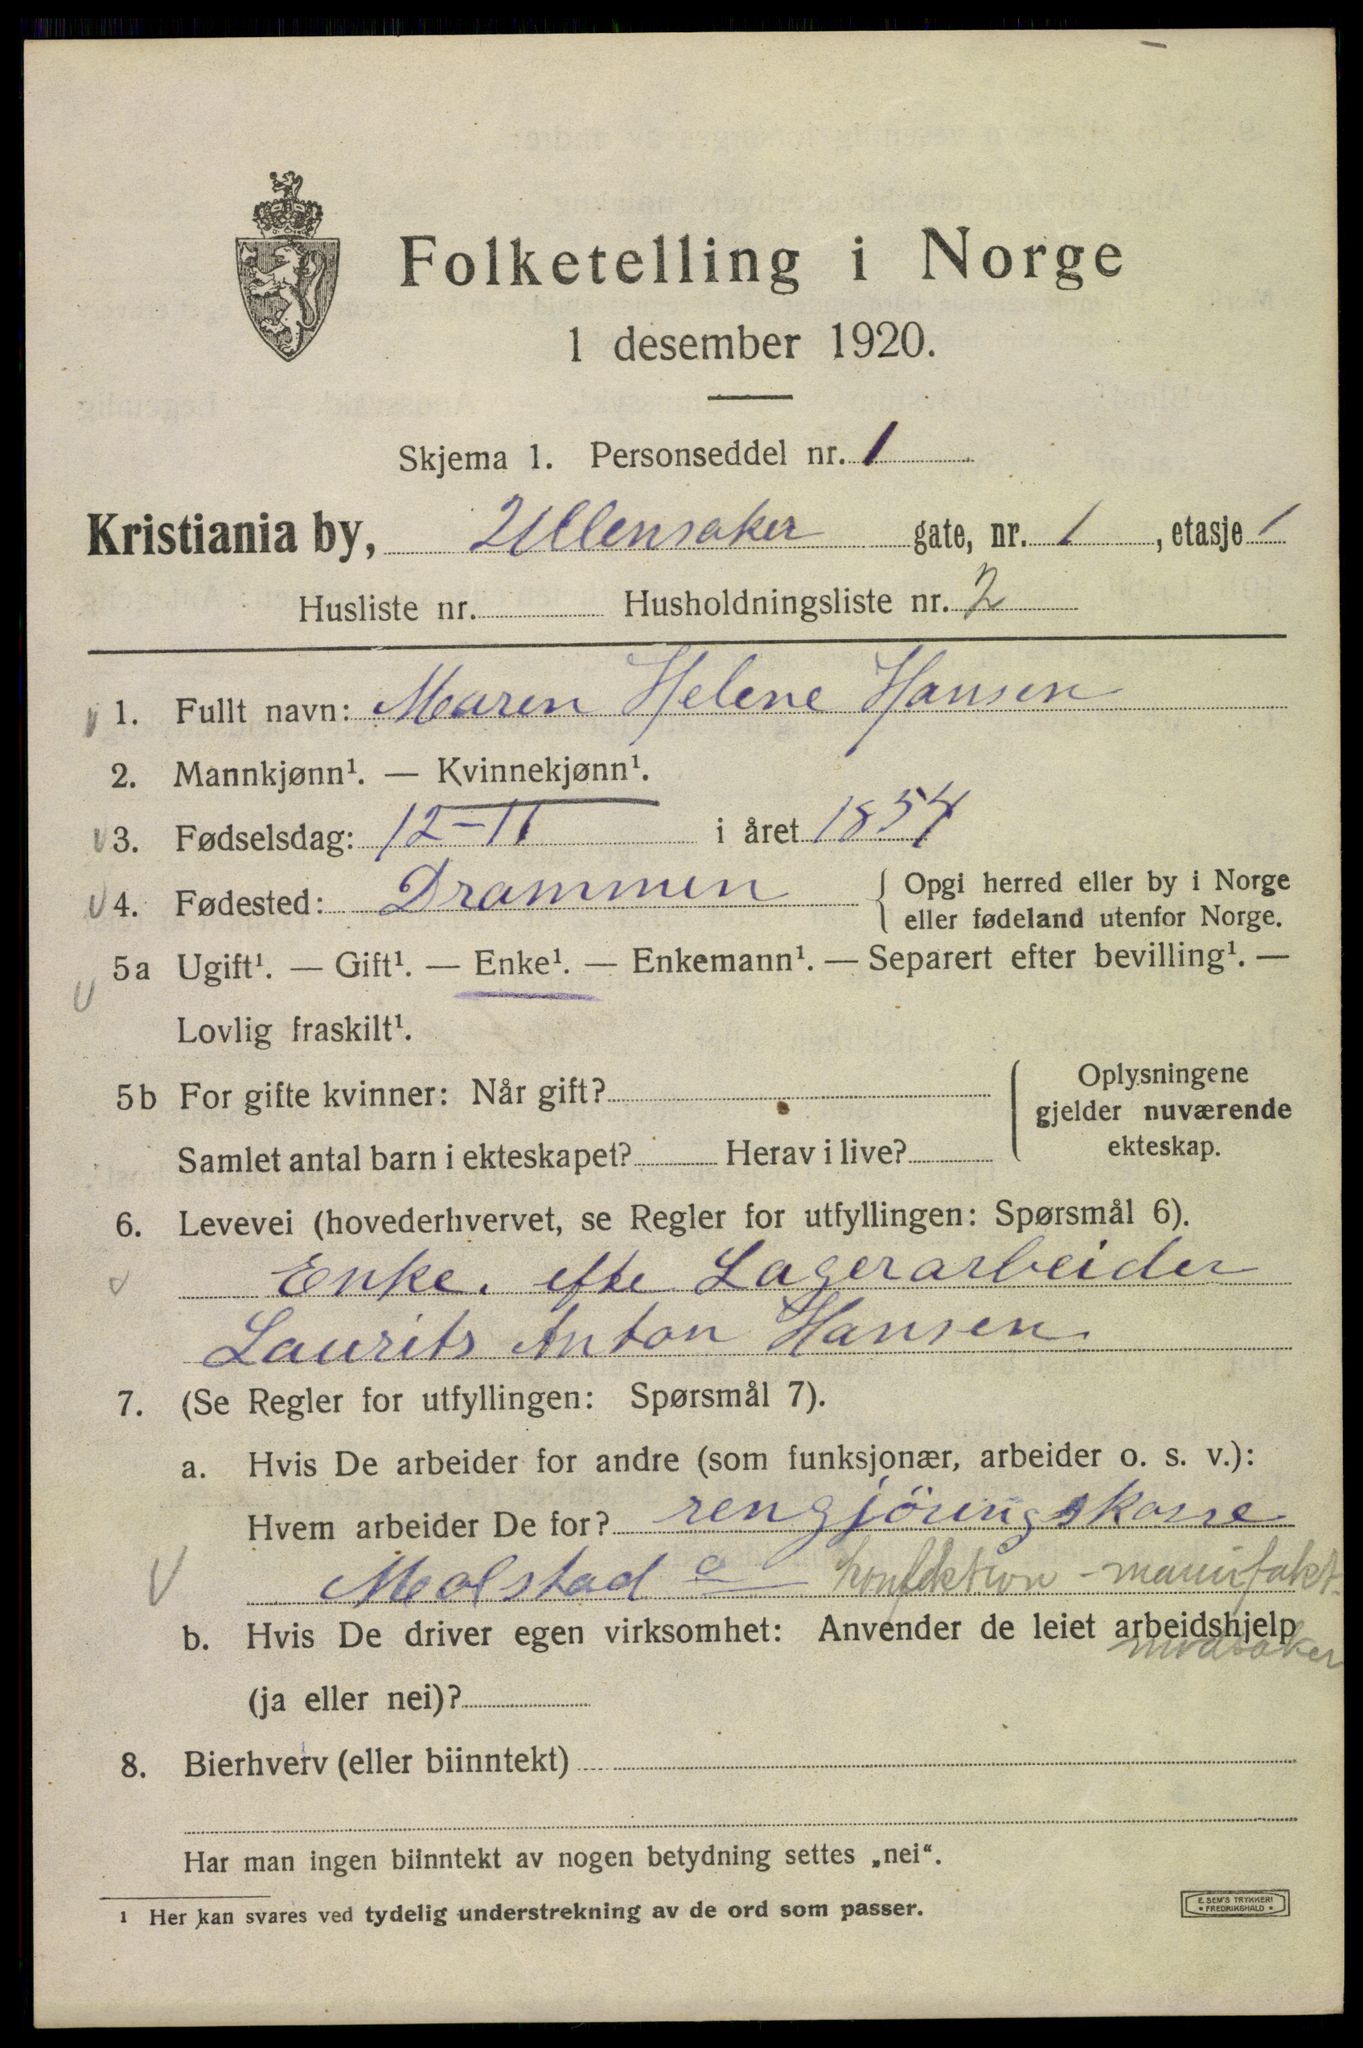 Folketelling i Norge
1 desember 1920.
Skjema 1. Personseddel nr. 1
Kristiania by, Ullensaker gate, nr. 1, etasje 1
Husliste nr. Husholdningsliste nr. 2
1. Fullt navn: Maren Helene Hansen
2. Mannkjønn¹. — Kvinnekjønn¹.
3. Fødselsdag: 12-11 i året 1854
4. Fødested: Drammen { Opgi herred eller by i Norge
eller fødeland utenfor Norge.
5a Ugift¹. — Gift¹. — Enke¹. — Enkemann¹. — Separert efter bevilling¹. —
Lovlig fraskilt¹.
5b For gifte kvinner: Når gift?
Samlet antal barn i ekteskapet? Herav i live?
Oplysningene
gjelder nuværende
ekteskap.
6. Levevei (hovederhvervet, se Regler for utfyllingen: Spørsmål 6).
Enke. efte Lagerarbeider
Laurits Anton Hansen.
7. (Se Regler for utfyllingen: Spørsmål 7).
a. Hvis De arbeider for andre (som funksjonær, arbeider o. s. v.):
Hvem arbeider De for? rengjörings
Molstad konfektion - manufakt.
b. Hvis De driver egen virksomhet: Anvender de leiet arbeidshjelp
(ja eller nei)?
8. Bierhverv (eller biinntekt)
Har man ingen biinntekt av nogen betydning settes „nei“.
¹ Her kan svares ved tydelig understrekning av de ord som passer.
E. SEM'S TRYKKERI
• FREDRIKSHALD •